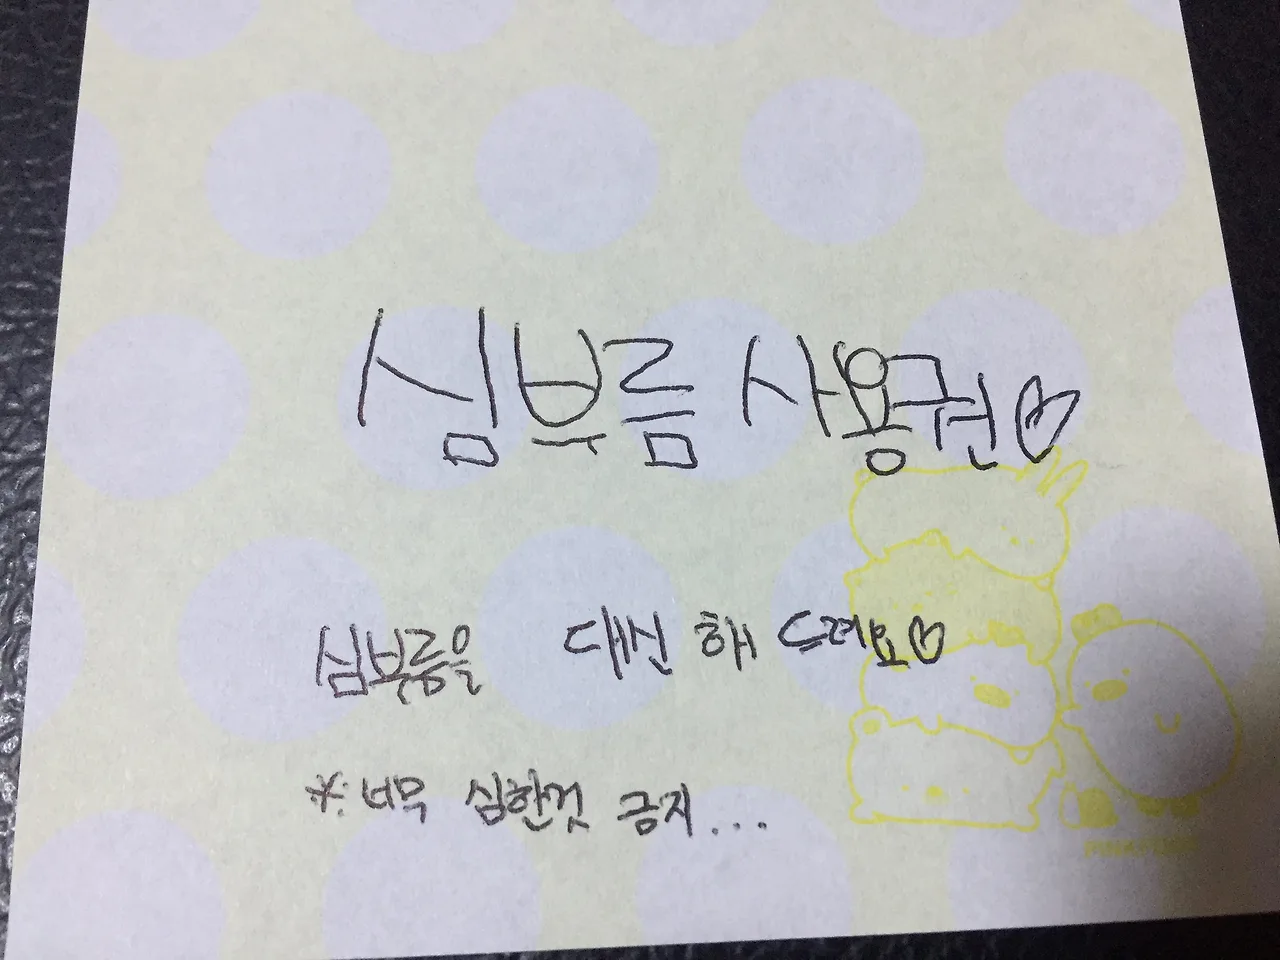 심부름 사용권♡
심부름을 대신 해 드려요♡
※너무 심한것 금지...